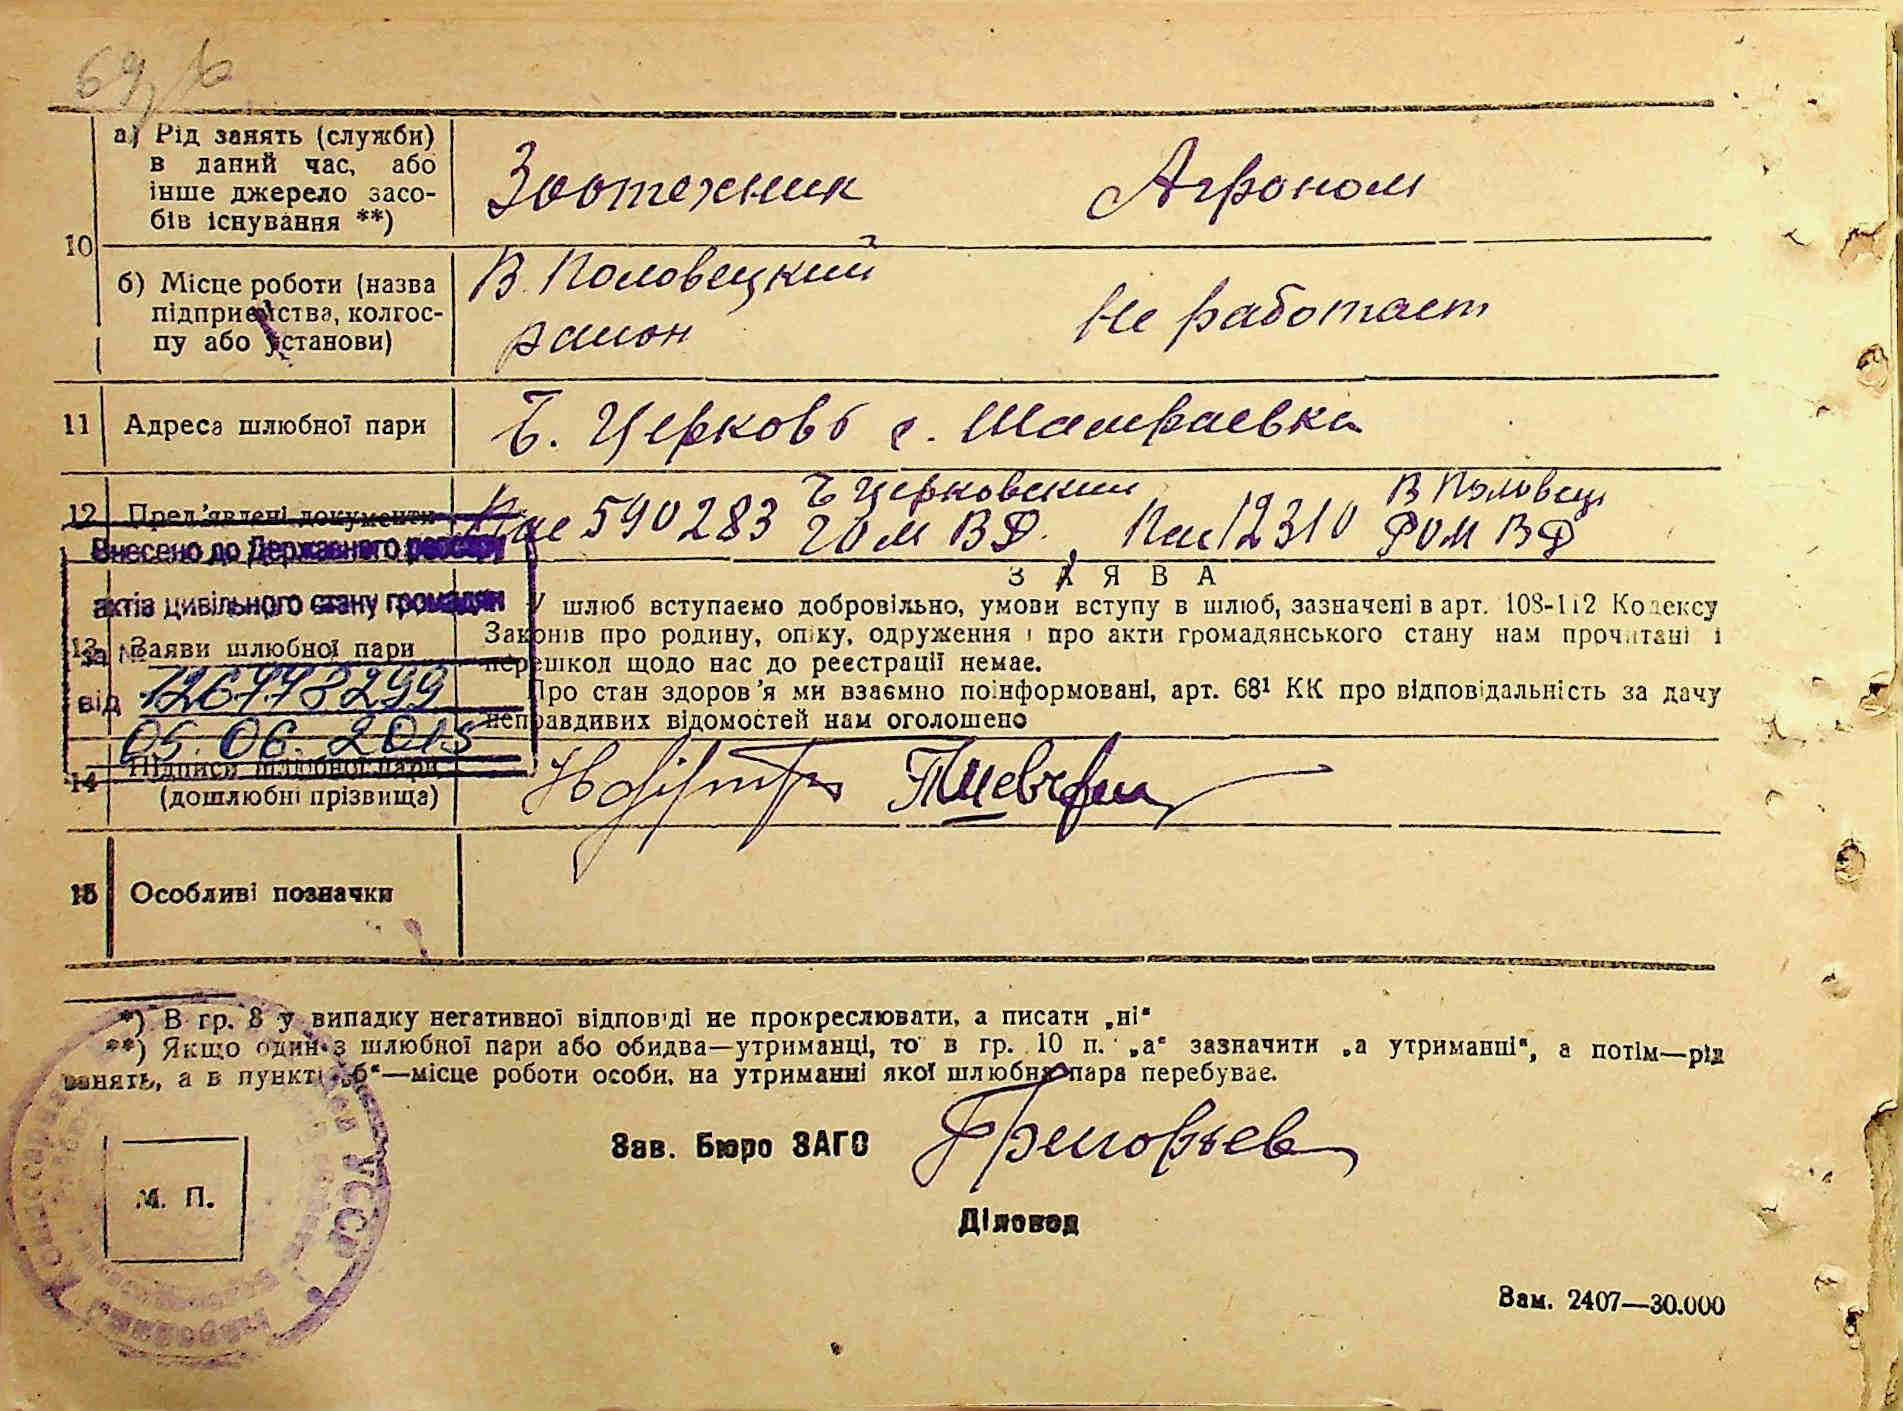 69
10
а) Рід занять (служби)
в даний час, або
інше джерело засо-
бів існування **)
Зоотехник
Агроном
б) Місце роботи (назва
підприємства, колгос-
пу або установи)
В. Половецкий
район
Не работает
11
Адреса шлюбної пари
Б. Церковь с. Шамраевка
12
Пред'явлені документи
Пас 590283 Б Церковский
ГОМ ВД.
Пас 12310 В Половец
РОМ ВД
Внесено до Державного реєстру
актів цивільного стану громадян
за №
від 126778299
05.06.2015
13
Заяви шлюбної пари
ЗАЯВА
У шлюб вступаємо добровільно, умови вступу в шлюб, зазначені в арт. 108-112 Кодексу
Законів про родину, опіку, одруження і про акти громадянського стану нам прочитані і
перешкод щодо нас до реєстрації немає.
Про стан здоров'я ми взаємно поінформовані, арт. 68¹ КК про відповідальність за дачу
неправдивих відомостей нам оголошено
14
Підписи шлюбної пари
(дошлюбні прізвища)
15
Особливі позначки
*) В гр. 8 у випадку негативної відповіді не прокреслювати, а писати „ні“
**) Якщо один з шлюбної пари або обидва—утриманці, то в гр. 10 п. „а“ зазначити „а утриманці“, а потім—рід
занять, а в пункті „б“—місце роботи особи, на утриманні якої шлюбна пара перебуває.
Зав. Бюро ЗАГС Григорьев
М. П.
УССР
Діловод
Зам. 2407—30.000